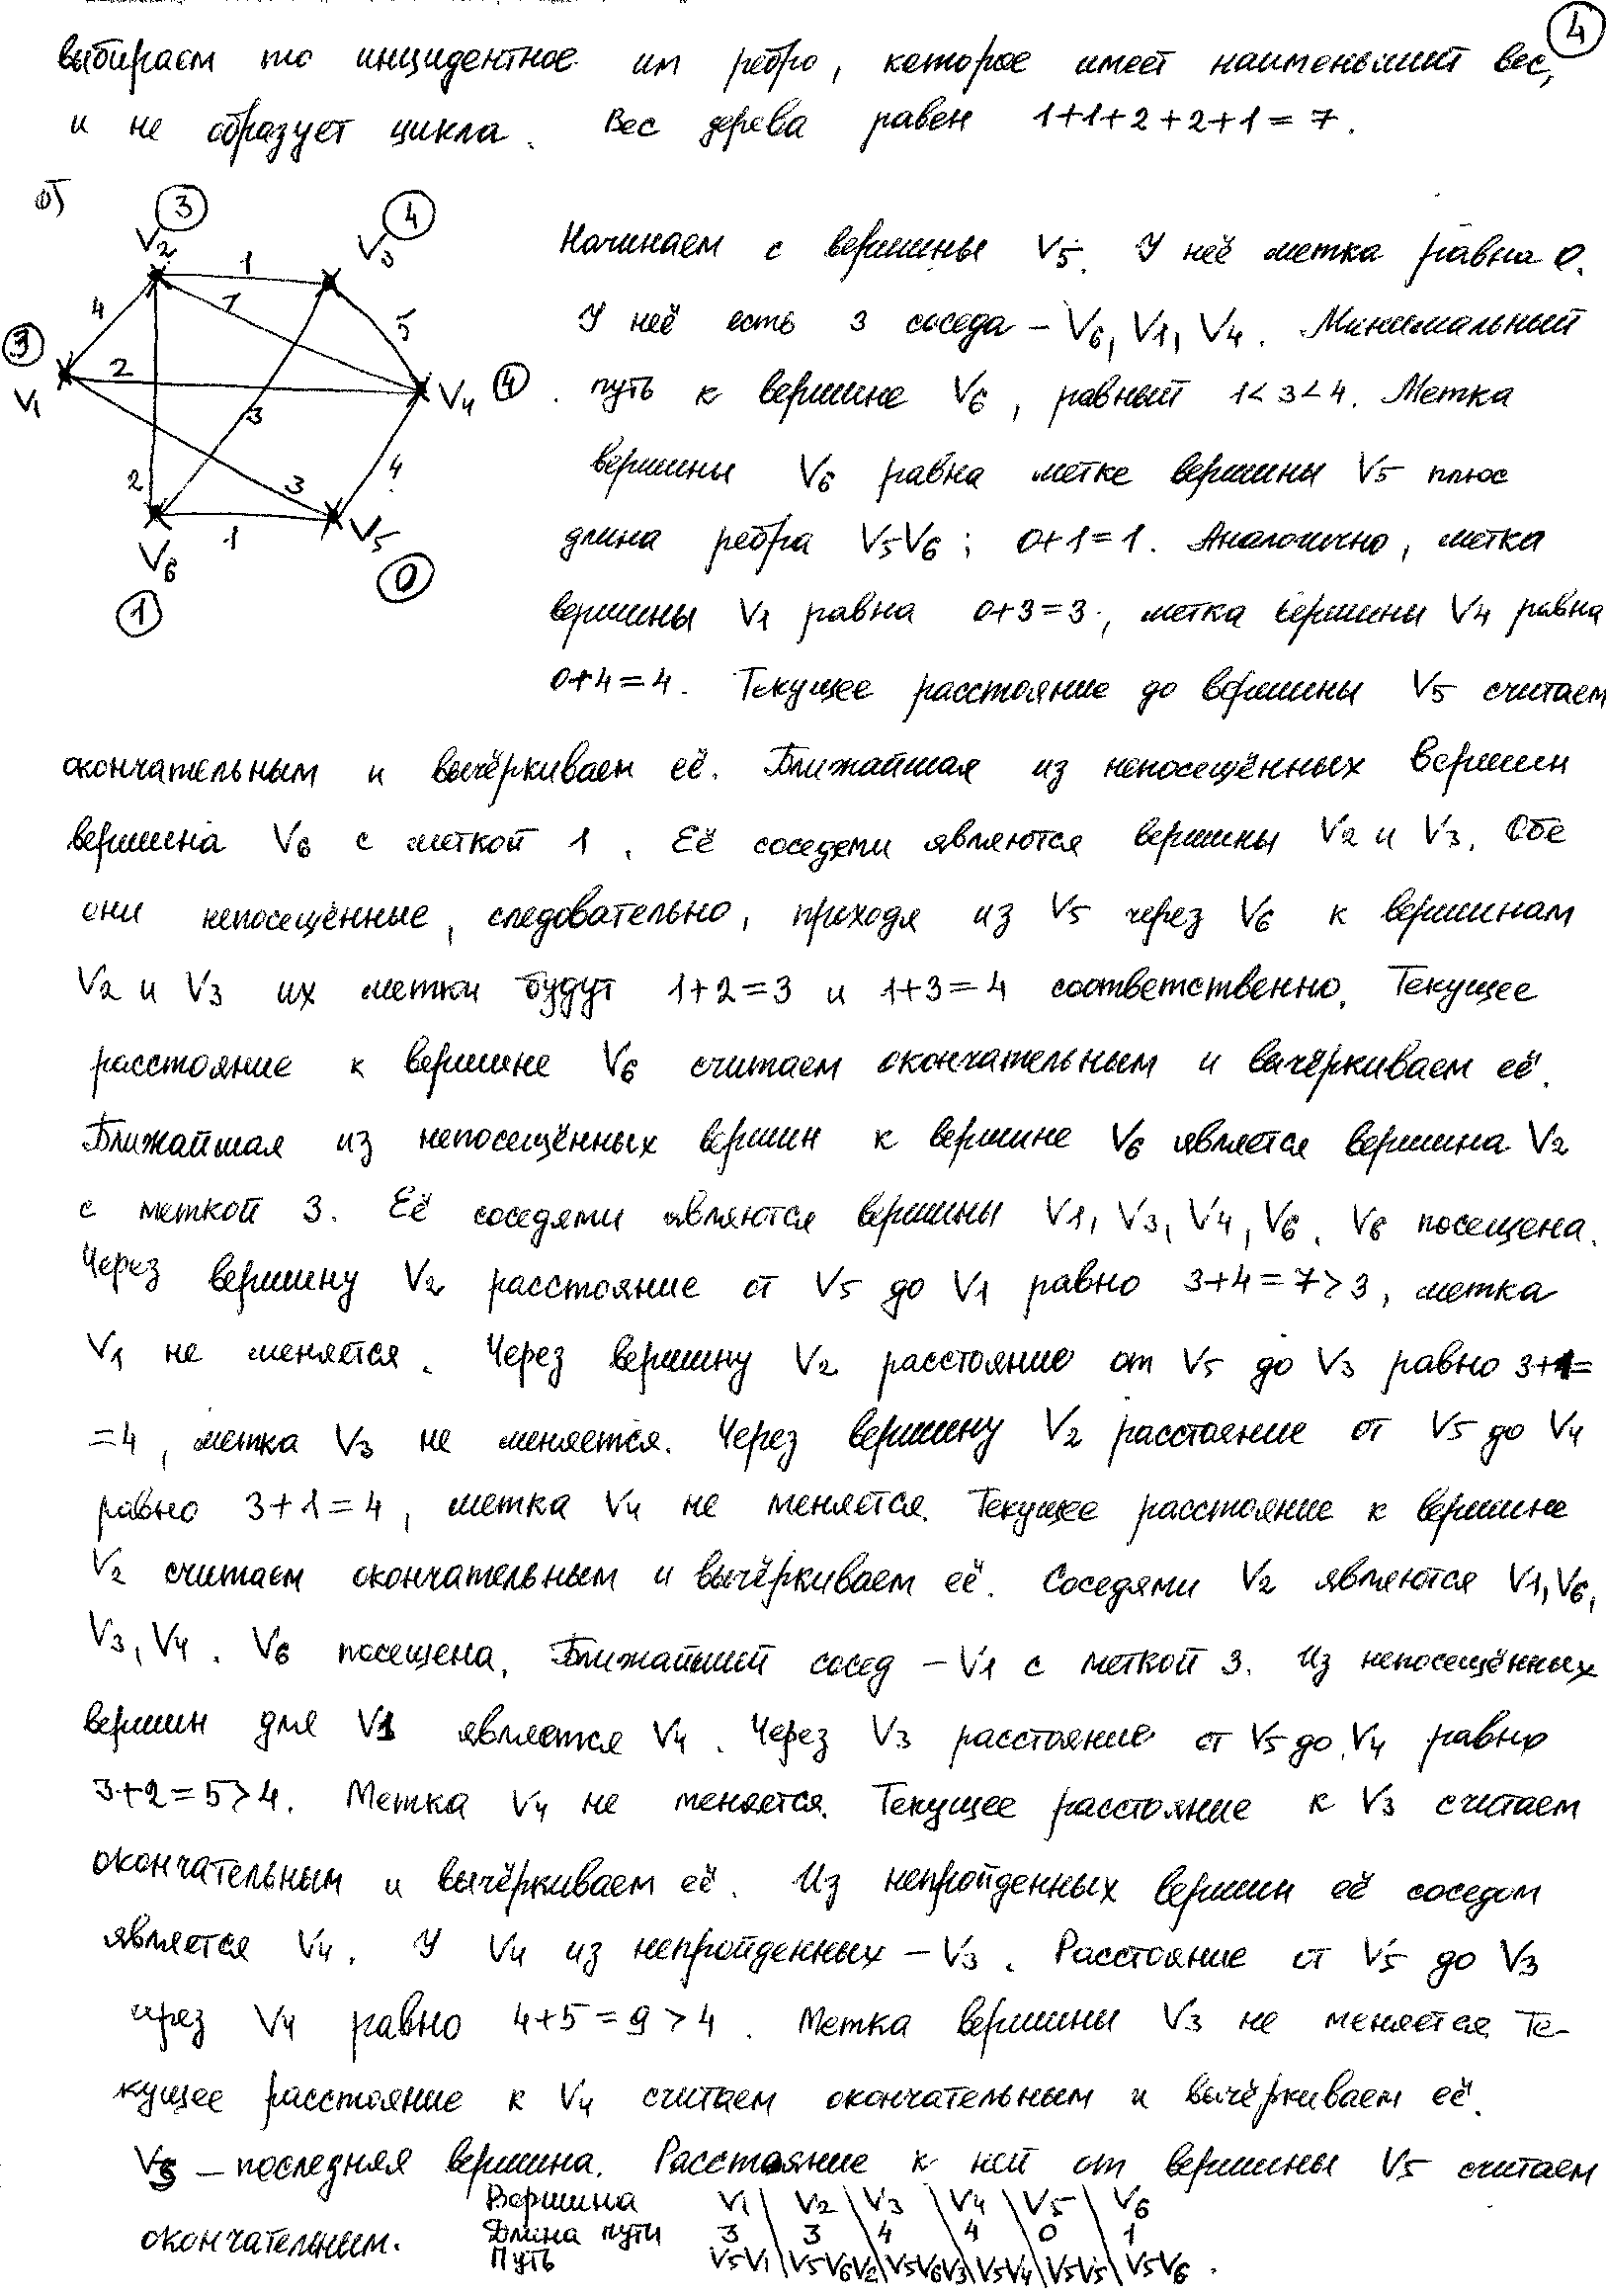 4
выбираем то инцидентное им ребро, которое имеет наименьший вес,
и не образует цикла. Вес дерева равен 1+1+2+2+1=7.
б)
3
4
V2
V3
1
4
1
5
3
2
V1
V4
4
3
2
3
4
1
V5
V6
0
1
Начинаем с вершины V5. У неё метка равна 0.
У неё есть 3 соседа – V6, V1, V4. Минимальный
путь к вершине V6, равный 1<3<4. Метка
вершины V6 равна метке вершины V5 плюс
длина ребра V5V6; 0+1=1. Аналогично, метка
вершины V1 равна 0+3=3, метка вершины V4 равна
0+4=4. Текущее расстояние до вершины V5 считаем
окончательным и вычёркиваем её. Ближайшая из непосещённых вершин
вершина V6 с меткой 1. Её соседями являются вершины V2 и V3. Обе
они непосещённые, следовательно, приходя из V5 через V6 к вершинам
V2 и V3 их метки будут 1+2=3 и 1+3=4 соответственно. Текущее
расстояние к вершине V6 считаем окончательным и вычёркиваем её.
Ближайшая из непосещённых вершин к вершине V6 является вершина V2
с меткой 3. Её соседями являются вершины V1, V3, V4, V6. V6 посещена.
Через вершину V2 расстояние от V5 до V1 равно 3+4=7>3, метка
V1 не меняется. Через вершину V2 расстояние от V5 до V3 равно 3+1=
=4, метка V3 не меняется. Через вершину V2 расстояние от V5 до V4
равно 3+1=4, метка V4 не меняется. Текущее расстояние к вершине
V2 считаем окончательным и вычёркиваем её. Соседями V2 являются V1, V6,
V3, V4. V6 посещена. Ближайший сосед – V1 с меткой 3. Из непосещённых
вершин для V1 является V4. Через V3 расстояние от V5 до V4 равно
3+2=5>4. Метка V4 не меняется. Текущее расстояние к V3 считаем
окончательным и вычёркиваем её. Из непройденных вершин её соседом
является V4. У V4 из непройденных – V3. Расстояние от V5 до V3
через V4 равно 4+5=9>4. Метка вершины V3 не меняется. Те-
кущее расстояние к V4 считаем окончательным и вычёркиваем её.
V3 – последняя вершина. Расстояние к ней от вершины V5 считаем
окончательным.
Вершина V1 | V2 | V3 | V4 | V5 | V6
Длина пути 3 | 3 | 4 | 4 | 0 | 1
Путь V5V1 | V5V6V2 | V5V6V3 | V5V4 | V5V5 | V5V6.